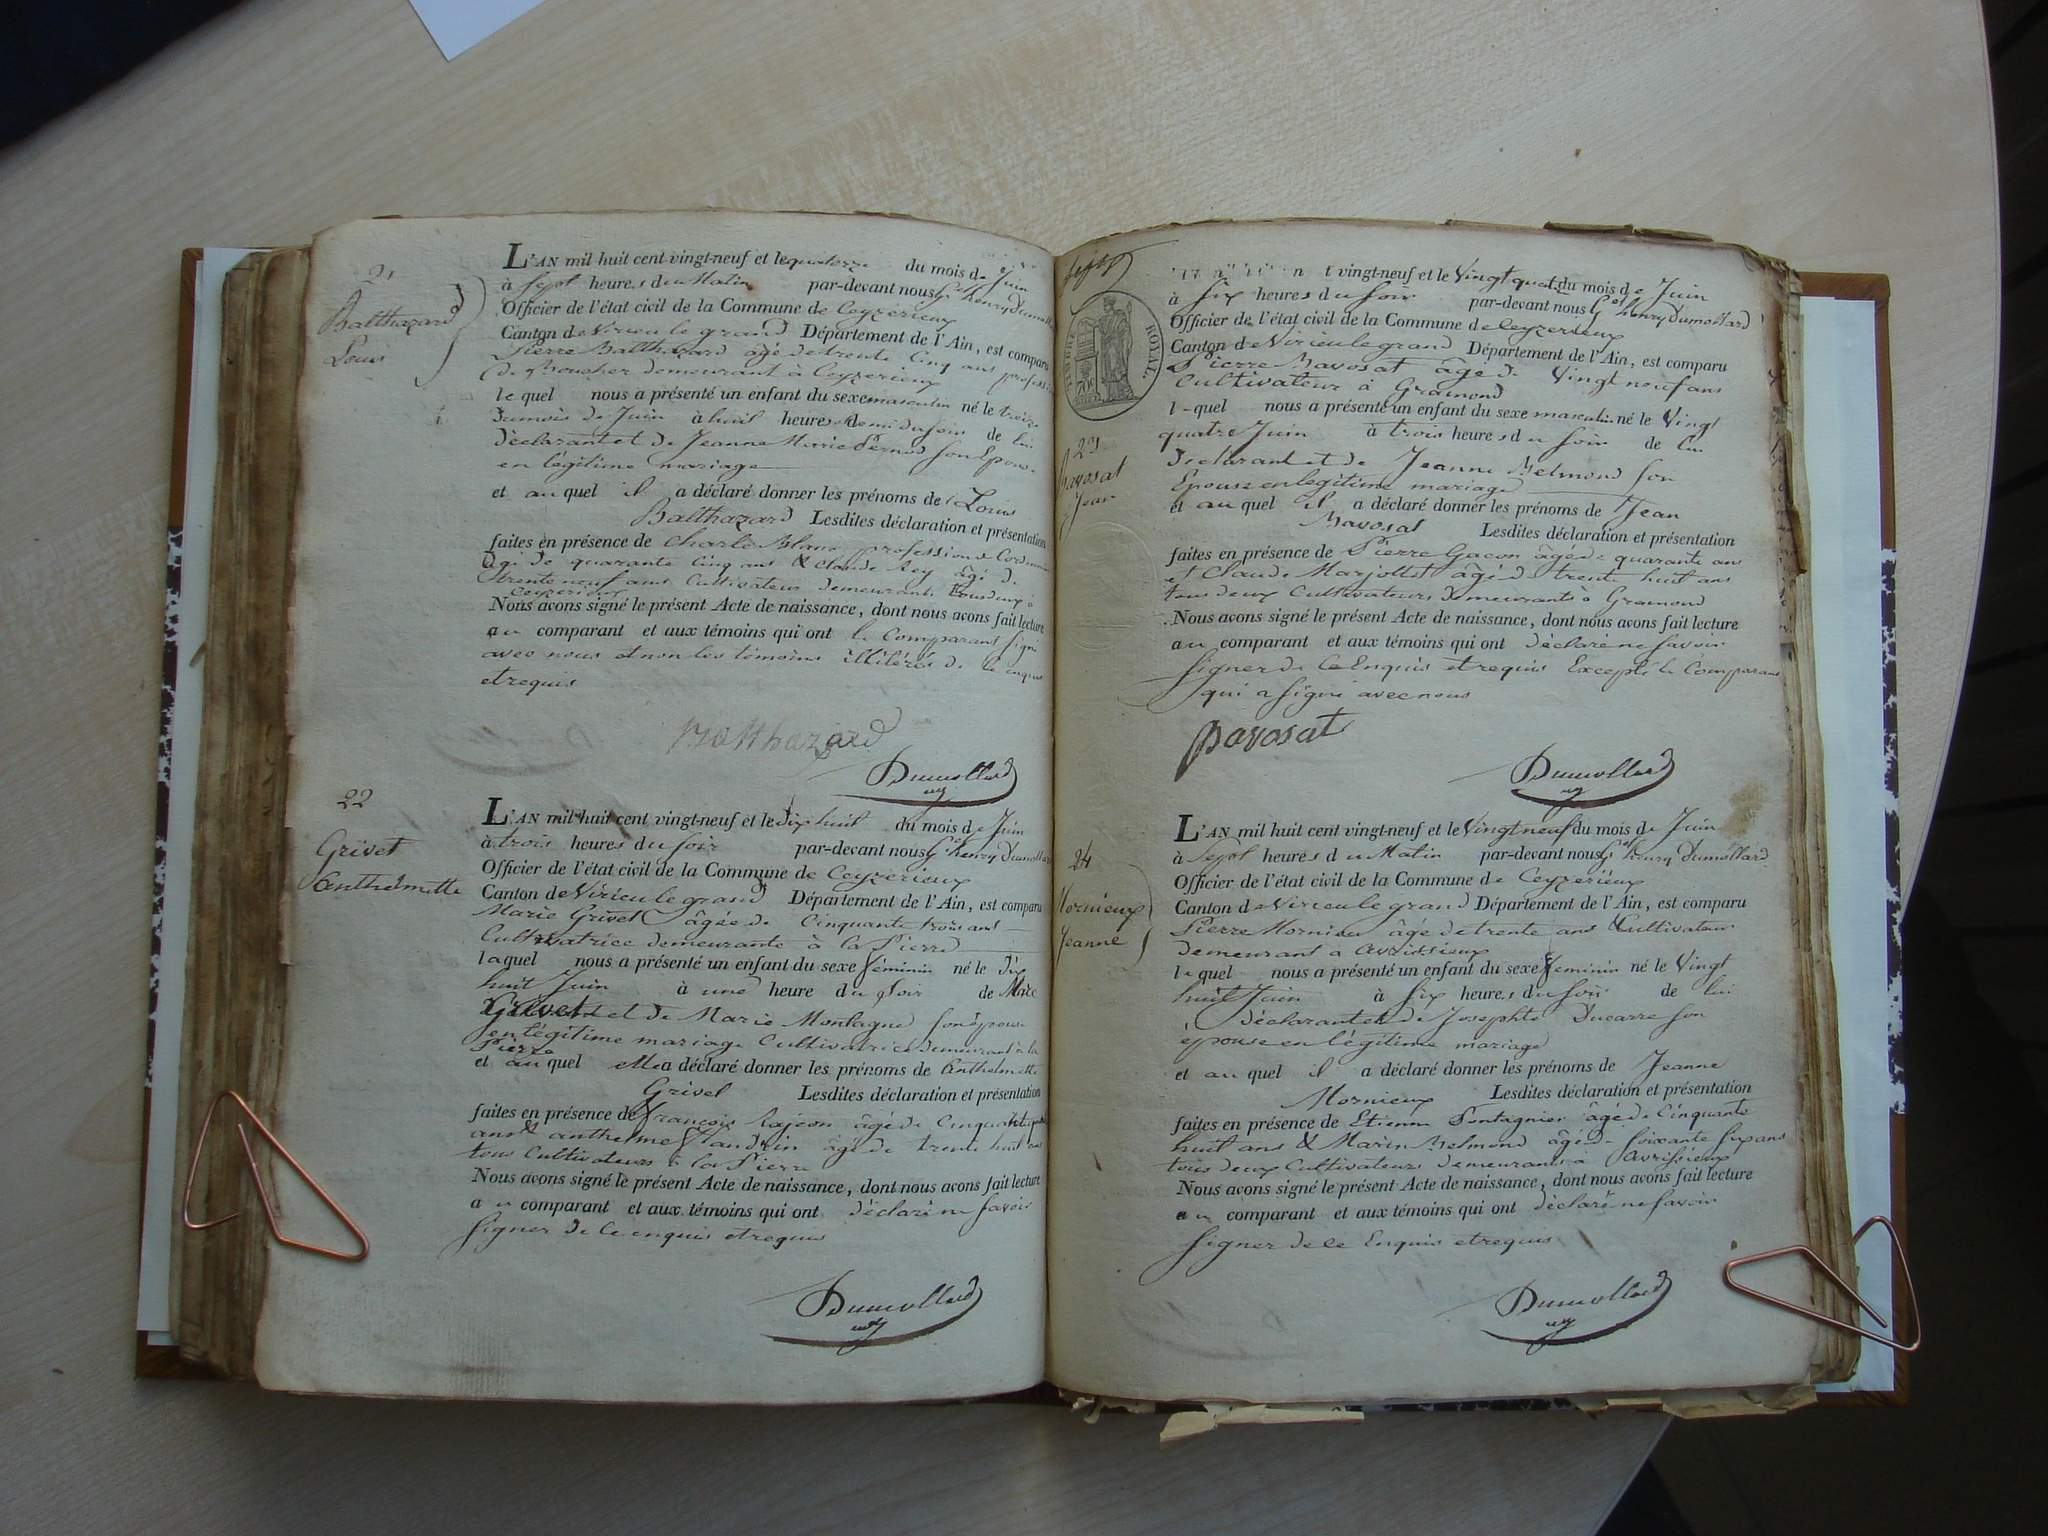 21
Balthazard
Louis
L'AN mil huit cent vingt-neuf et le quatorze du mois de Juin
à Sept heures du Matin par-devant nous Gel henry Dumollard
Officier de l'état civil de la Commune de Ceyzerieux
Canton de Virieu le grand Département de l'Ain, est comparu
Pierre Balthazard âgé de trente Cinq ans profession
de Boucher demeurant à Ceyzerieux
lequel nous a présenté un enfant du sexe masculin né le treize
du mois de Juin à huit heures & demi du soir de lui
déclarant et de Jeanne Marie son Epouse
en légitime mariage
et auquel il a déclaré donner les prénoms de Louis
Balthazard Lesdites déclaration et présentation
faites en présence de Charle Blanc profession de
âgé de quarante Cinq ans & Claude Rey âgé de
trente neuf ans Cultivateur demeurants tous deux à
Ceyzerieux
Nous avons signé le présent Acte de naissance, dont nous avons fait lecture
au comparant et aux témoins qui ont le Comparant signé
avec nous et non les témoins illitérés de ce enquis
et requis
Balthazard
Dumollard
22
Grivet
Anthelmette
L'AN mil huit cent vingt-neuf et le dix huit du mois de Juin
à trois heures du soir par-devant nous Gel henry Dumollard
Officier de l'état civil de la Commune de Ceyzerieux
Canton de Virieu le grand Département de l'Ain, est comparu
Marie Grivet âgée de Cinquante trois ans
Cultivatrice demeurante à la Pierre
laquel nous a présenté un enfant du sexe féminin né le Dix
huit Juin à une heure du soir de Marc
Grivet et de Marie Montagne son épouse
en légitime mariage Cultivatrice demeurant à la
Pierre
et auquel elle a déclaré donner les prénoms de Anthelmette
Grivet Lesdites déclaration et présentation
faites en présence de françois Rajeon âgé de Cinquante
ans & anthelme flandrin âgé de trente huit ans
tous Cultivateurs à la Pierre
Nous avons signé le présent Acte de naissance, dont nous avons fait lecture
au comparant et aux témoins qui ont déclaré ne savoir
signer de ce enquis et requis
Dumollard
TIMBRE ROYAL
70c
23
Bavosat
Jean
vingt-neuf et le Vingt quatre du mois de Juin
à Six heures du soir par-devant nous Gel henry Dumollard
Officier de l'état civil de la Commune de Ceyzerieux
Canton de Virieu le grand Département de l'Ain, est comparu
Pierre Bavosat âgé de Vingt neuf ans
Cultivateur à Gramond
lequel nous a présenté un enfant du sexe masculin né le Vingt
quatre Juin à trois heures du soir de lui
Déclarant et de Jeanne Belmond son
Epouse en légitime mariage
et auquel il a déclaré donner les prénoms de Jean
Bavosat Lesdites déclaration et présentation
faites en présence de Pierre Gacon âgé de quarante ans
et Claude Marjollet âgé de trente huit ans
tous deux Cultivateurs demeurants à Gramond
Nous avons signé le présent Acte de naissance, dont nous avons fait lecture
au comparant et aux témoins qui ont déclaré ne savoir
signer de ce Enquis et requis Excepté le Comparant
qui a signé avec nous
Bavosat
Dumollard
24
Mornieux
Jeanne
L'AN mil huit cent vingt-neuf et le Vingt neuf du mois de Juin
à Sept heures du Matin par-devant nous Gel henry Dumollard
Officier de l'état civil de la Commune de Ceyzerieux
Canton de Virieu le grand Département de l'Ain, est comparu
Pierre Mornieu âgé de trente ans Cultivateur
demeurant à Avrissieux
lequel nous a présenté un enfant du sexe féminin né le Vingt
huit Juin à Six heures du soir de lui
Déclarant et de Josephte Ducarre son
épouse en légitime mariage
et auquel il a déclaré donner les prénoms de Jeanne
Mornieux Lesdites déclaration et présentation
faites en présence de Etienne Pontagnier âgé de Cinquante
huit ans & Marin Belmond âgé de soixante six ans
tous deux Cultivateurs demeurants à Avrissieux
Nous avons signé le présent Acte de naissance, dont nous avons fait lecture
au comparant et aux témoins qui ont déclaré ne savoir
signer de ce Enquis et requis
Dumollard